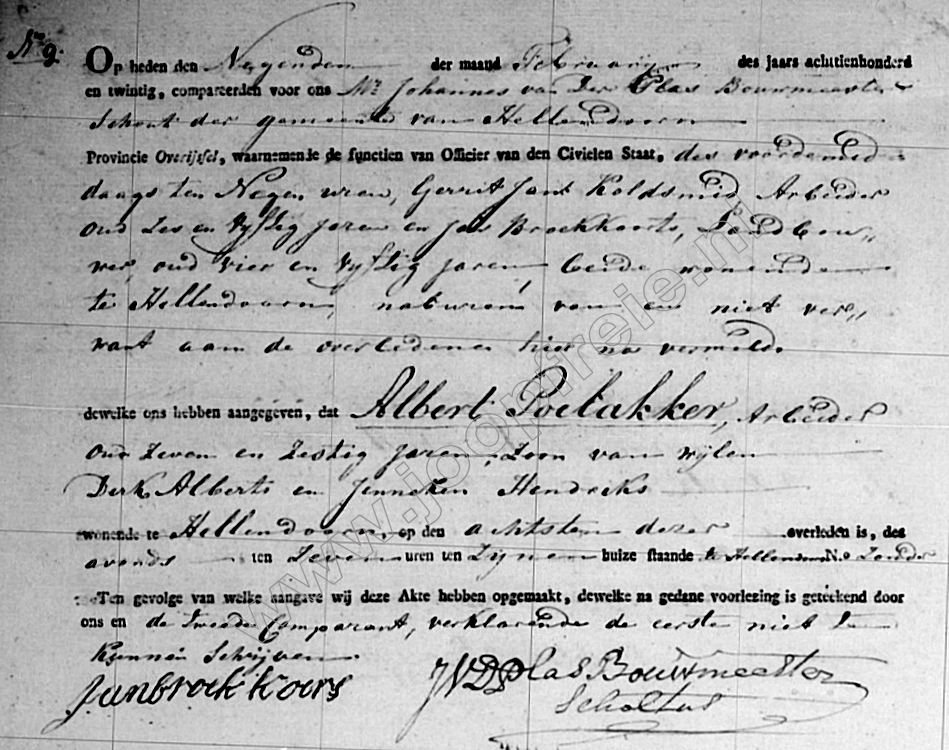 No 9.
Op heden den Negenden der maand Februarij des jaars achttienhonderd
en twintig, compareerden voor ons Mr Johannes van Der Plas Bouwmeester
Schout der gemeente van Hellendoorn
Provincie Overijssel, waarnemende de functien van Officier van den Civielen Staat, des voordemid
daags ten Negen uren, Gerrit Jan Koldsmid Arbeider
oud Zes en Vyftig Jaren en Jan Broekkoorts, Landbou„
wer, oud vier en Vyftig Jaren beide wonende
te Hellendoorn, naburen van en niet ver„
want aan de overledene hier na vermeld.
dewelke ons hebben aangegeven, dat Albert Poelakker, Arbeider
oud Zeven en Zestig Jaren, Zoon van wylen
Derk Alberts en Jenneken Hendriks
wonende te Hellendoorn, op den achtsten dezer overleden is, des
avonds ten Zeven uren ten Zynen huize staande te Hellendoorn No
Ten gevolge van welke aangave wij deze Akte hebben opgemaakt, dewelke na gedane voorlezing is geteekend door
ons en de Tweede Comparant, verklarende de eerste niet te
Kunnen Schryven.
Janbroek koers JVDPlas Bouwmeester
Scholtus
www.joopfreie.nl